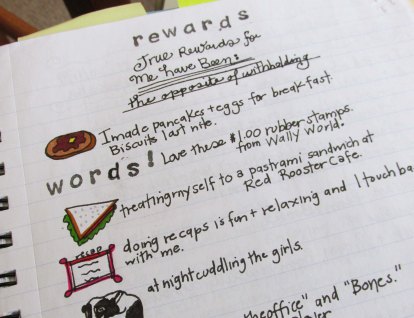 rewards
True Rewards for
me have Been:
the opposite of withholding
I made pancakes + eggs for breakfast
Biscuits last nite.
words! Love these $1.00 rubber stamps.
from Wally World.
treating myself to a pastrami sandwich at
Red Rooster Cafe.
doing recaps is fun + relaxing and I touch ba
with me.
recap
at night cuddling the girls.
theoffice" and "Bones."